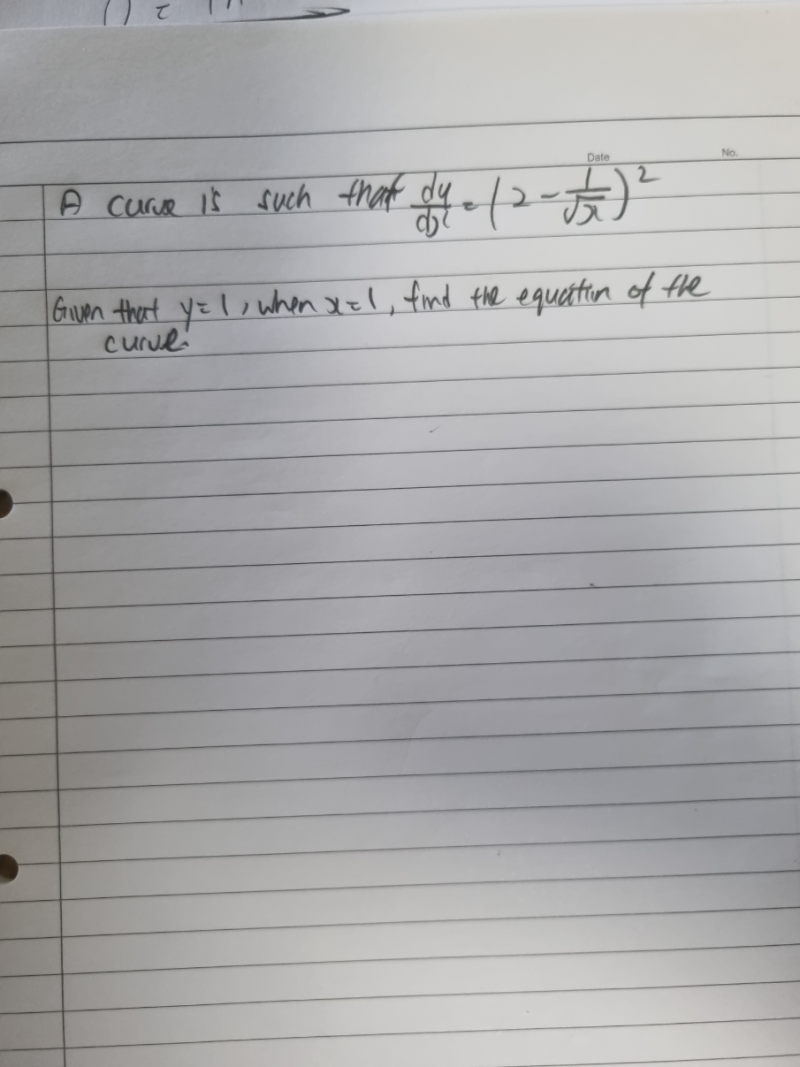 Date No.
A curve is such that dy/dx = (2 - 1/√x)²
Given that y=1, when x=1, find the equation of the
curve.